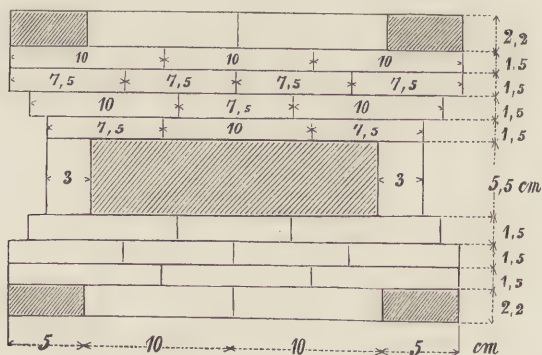 2,2
10 10 10 1,5
7,5 7,5 7,5 7,5 1,5
10 7,5 10 1,5
7,5 10 7,5 1,5
3 3 5,5 cm
1,5
1,5
1,5
2,2
5 10 10 5 cm